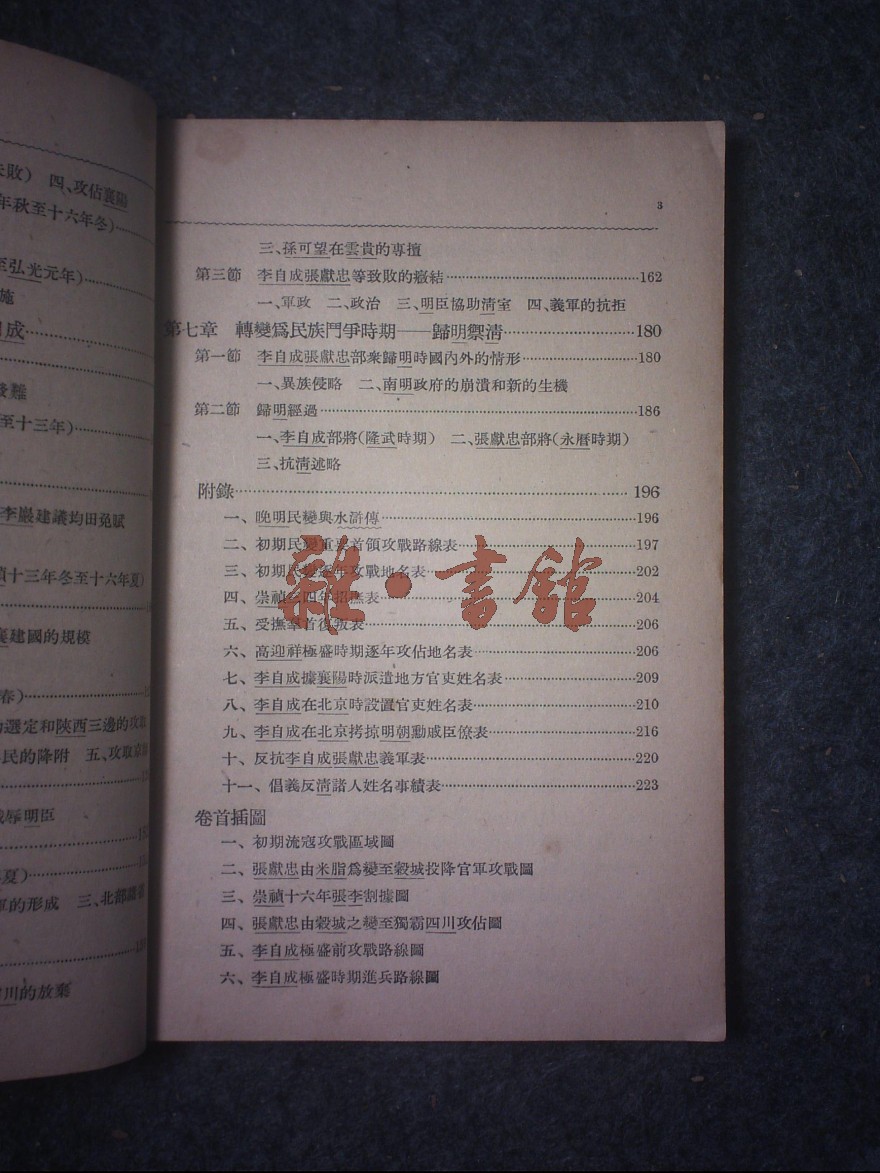 失敗) 四、攻佔襄陽
年秋至十六年冬)
至弘光元年)
施
自成
發難
至十三年)
李巖建議均田免賦
禎十三年冬至十六年夏)
襄建國的規模
春)
的選定和陝西三邊的攻取
民的降附 五、攻取京
戮辱明臣
夏)
軍的形成 三、北部
川的放棄
3
三、孫可望在雲貴的專擅
第三節 李自成張獻忠等致敗的癥結……162
一、軍政 二、政治 三、明臣協助清室 四、義軍的抗拒
第七章 轉變爲民族鬥爭時期——歸明禦清……180
第一節 李自成張獻忠部衆歸明時國內外的情形……180
一、異族侵略 二、南明政府的崩潰和新的生機
第二節 歸明經過……186
一、李自成部將(隆武時期) 二、張獻忠部將(永曆時期)
三、抗清述略
附錄……196
一、晚明民變與水滸傳……196
二、初期民變重要首領攻戰路線表……197
三、初期民變逐年攻戰地名表……202
四、崇禎三四年招撫表……204
五、受撫羣首復叛表……206
六、高迎祥極盛時期逐年攻佔地名表……206
七、李自成據襄陽時派遣地方官吏姓名表……209
八、李自成在北京時設置官吏姓名表……210
九、李自成在北京拷掠明朝勳戚臣僚表……216
十、反抗李自成張獻忠義軍表……220
十一、倡義反清諸人姓名事績表……223
卷首插圖
一、初期流寇攻戰區域圖
二、張獻忠由米脂爲變至穀城投降官軍攻戰圖
三、崇禎十六年張李割據圖
四、張獻忠由穀城之變至獨霸四川攻佔圖
五、李自成極盛前攻戰路線圖
六、李自成極盛時期進兵路線圖
雜·書館